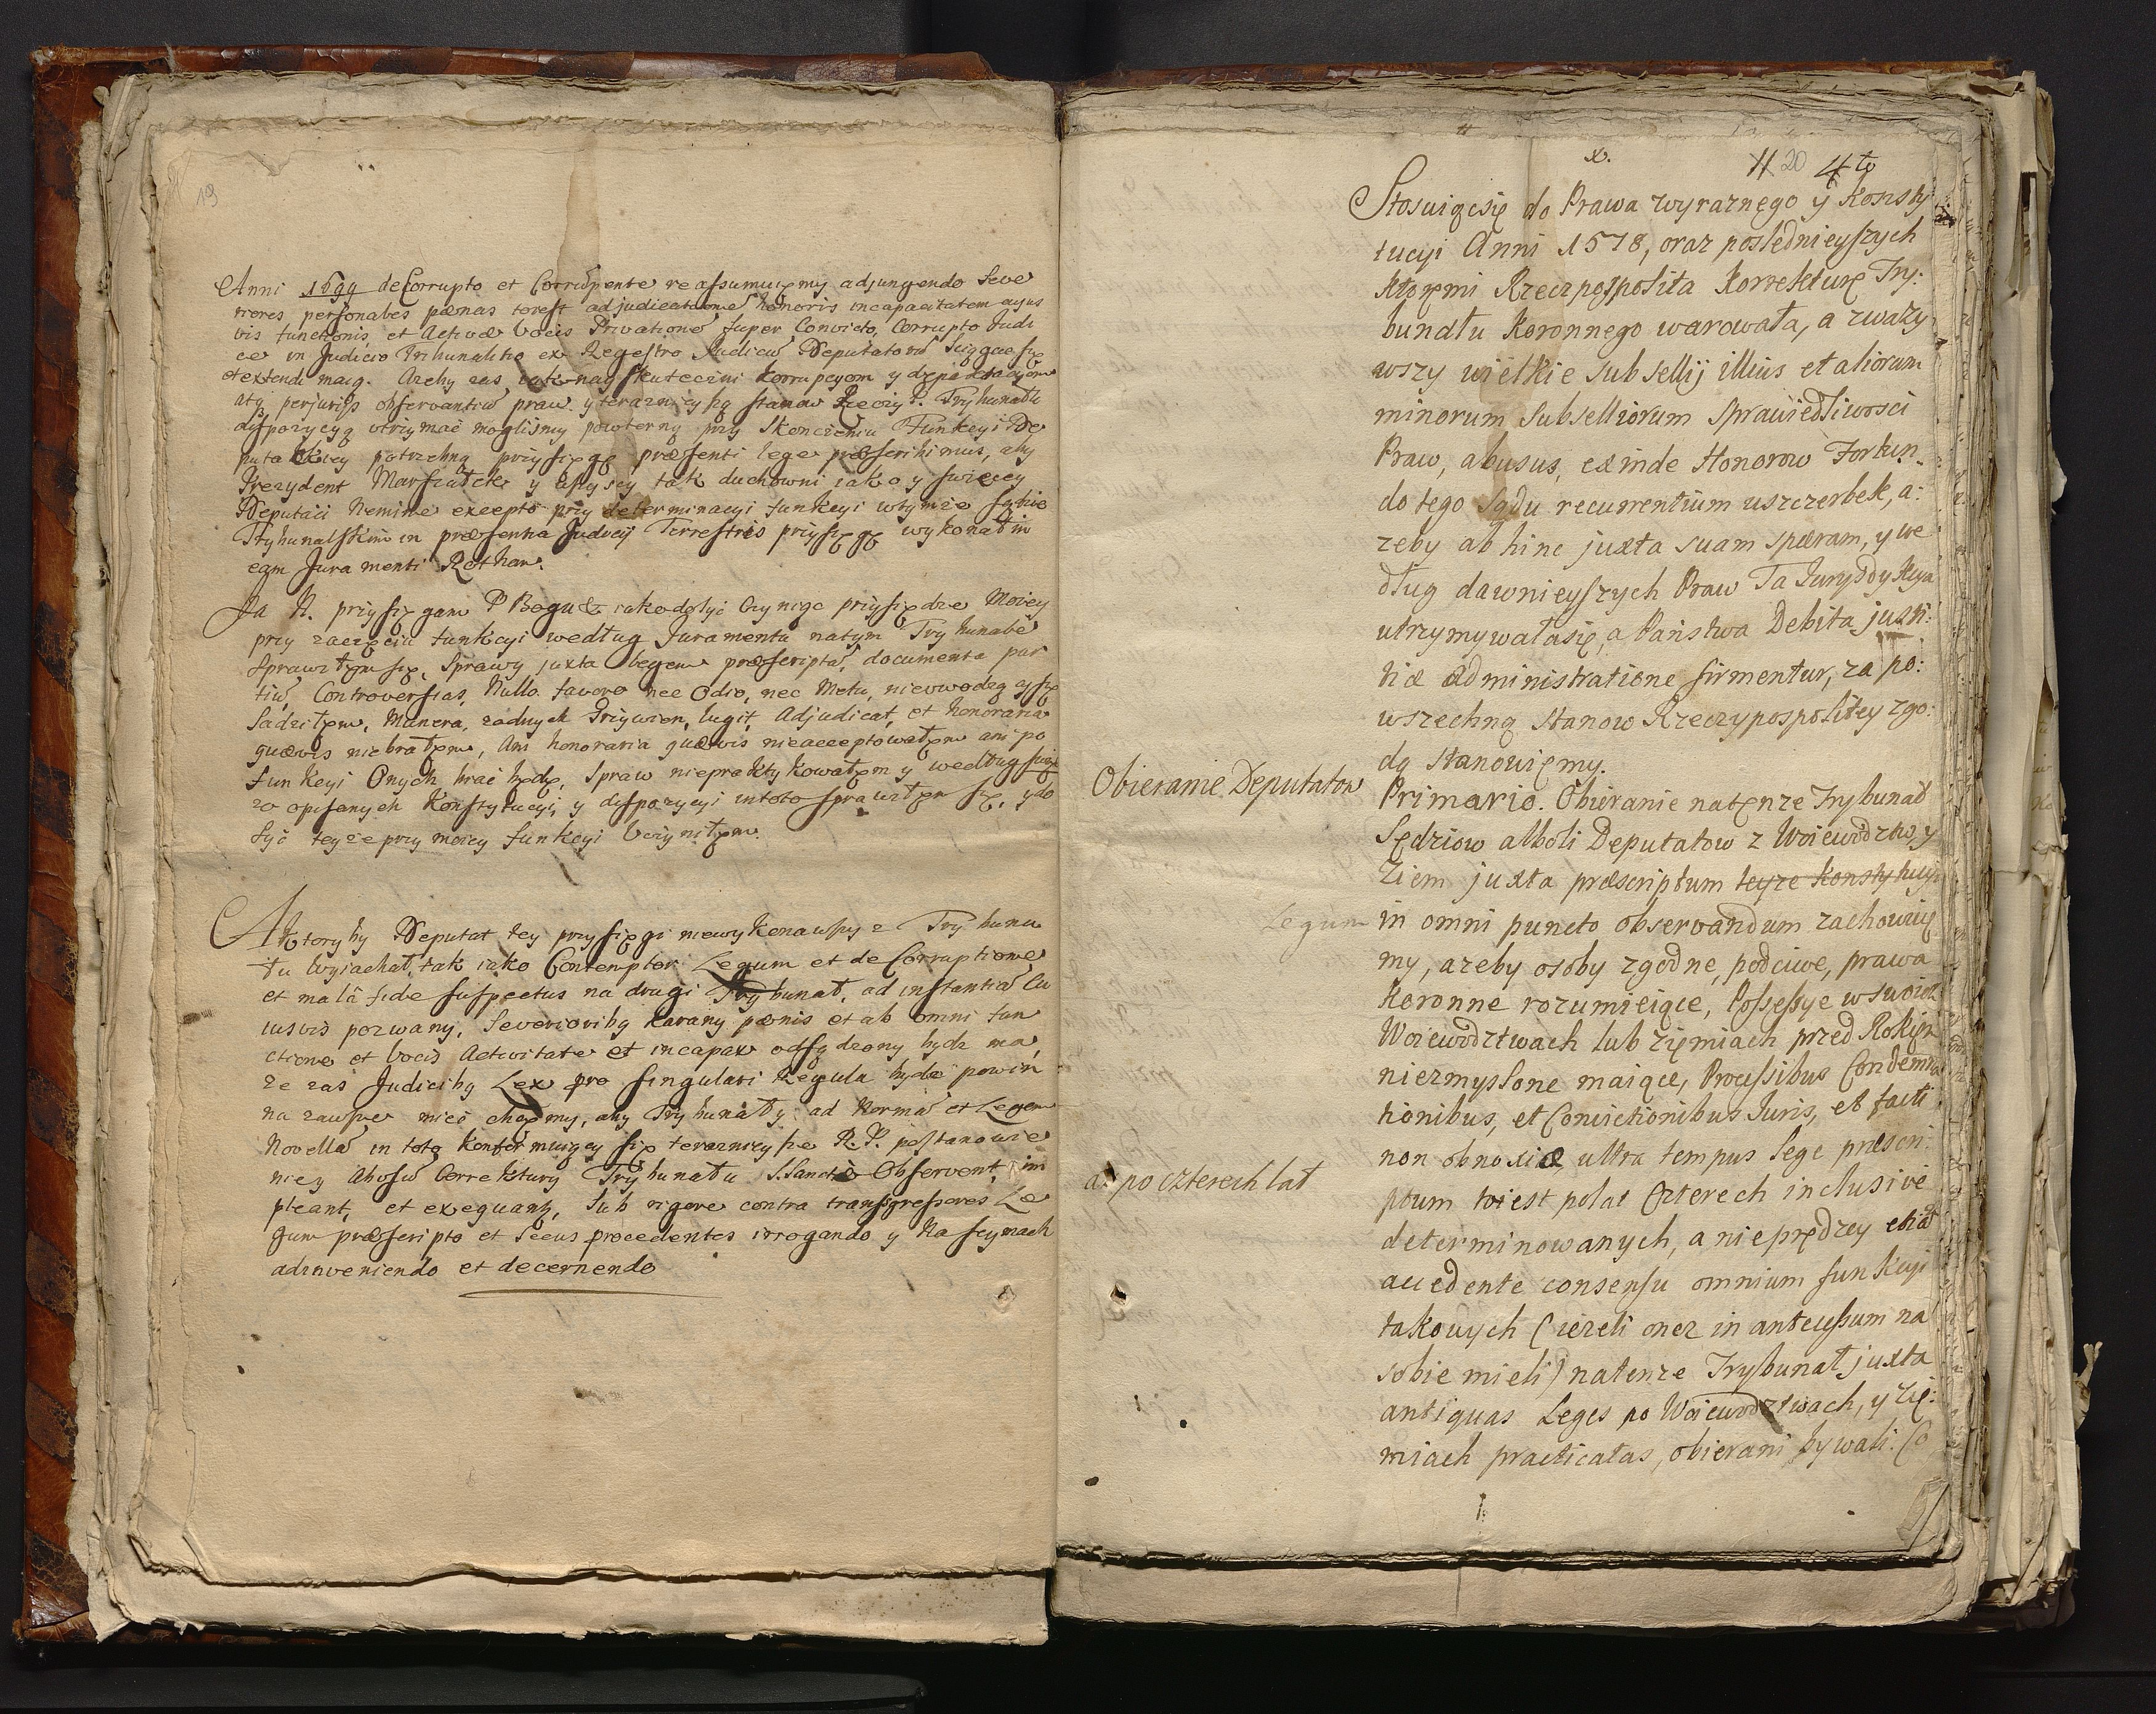 19
Anni 1699 de Corrupto et Corrumpente reassumuięmy adjungendo seve
riores personales pœnas to iest adjudicatione honoris incapacitatem cujus
vis functionis, et Activæ Vocis Privatione super Convicto, Corrupto Judi
ce in Judicio Tribunalitio ex Regestro Judicu Deputatoru sciągac się
et extendi maią. Azeby zas iak naỹ skutecżni korrupcyom y depaktacyom
atq perjuriis observantiu praw y teraznieyszą stanow Rzeczyp. Trybunału
dyspozycyą utrzymać mogliśmy powtorną przy Skonczeniu Funkcyi De
putatskiey potrzebną przysięgę præsenti lege præscribimus, aby
Prezydent Marszałek y wszyscy tak duchowni iako y swieccy
Deputaci Nemine excepto przy determinacyi funkcyi wtymże sądzie
Trybunalskim in præsentia Judicij Terrestris przysięgę wykonali in
eam Juramenti Rotham.
Ja N. przysięgam P Bogu & iako dosyć czyniąc przysiędze Moiey
przy zaczęciu funkcyi według Juramentu natym Trybunale
sprawiłem się, Sprawy juxta legem præscriptą, documenta par
tiu, Controversias, Nullo favore nec Odio, nec Metu, nieuwodząc się
sądziłem, Munera, żadnych Grzywien, lugit, Adjudicat, et honoraria
quævis niebrałem, Ani honoraria quævis nieacceptowałem ani po
funkcyi Onych brać będę, Spraw niepraktykowałem y według swię
zo opisanych Konstytucyi, y dyspozycyi in toto sprawiłem się, y do
syć teyże przy moiey funkcyi Uczyniłem.
A ktoryby Deputat tey przysięgi niewykonawszy z Trybuna
łu Wyiachał, tak iako Contemptor Legum et de Corruptione
et mala fide suspectus na drugi Trybunał, ad instantia Cu
iusvis pozwany, Severioribq karany pœnis et ab omni fun
ctione et Vocis Activitate et incapax odsądzony bydz ma,
że zaś Judicibq Lex pro singulari Regula bydz powin
na zawsze mieć chcemy, aby Trybunały ad Norma et Legem
Novella in toto konformuiący się teraznieyszo R.P. postanowie
niey Abusu Correktury Trybunału S.Sancte Observent, im
pleant, et exequant, Sub rigore contra transgressores Le
gum præscripto et Secus procedentes irrogando y Na seymach
adinveniendo et decernendo
x.
11 20 4to
Stosuiącsię do Prawa wyraznęgo y Konsty
tucyi Anni 1578, oraz poslednieyszych
ktoręmi Rzeczpospolita Korrekturę Try:
bunału Koronnego warowała, a zwazy
wszy wielkie subsellij illius et aliorum
minorum subselliorum sprawiedliwosci
Praw, abusus, exinde Honorow Fortun
do tego sądu recurrentium uszczerbek, a:
zeby ab hinc juxta suam spæram, y we
dług dawnieyszych Praw Ta Jurysdykcya
utrzymywałasię, a Państwa Debita justi:
tiæ administratione firmentur, za po:
wszechną stanow Rzeczypospolitey zgo:
dą stanowięmy.
Obieranie Deputatow
Primario. Obieranie natęnze Trybunał
Sędziow alboli Deputatow z Woiewodztw, y
Ziem juxta præscriptum teyze konstytucyi
Legum in omni puncto observandum zachowuię
my, azeby osoby zgodne, podciwe, prawa
Koronne rozumieiące, Possessye w swoich
Woiewodztwach lub ziemiach przed Rokiem
niezmyslone maiące, Processibus Condemna
tionibus, et Convictionibus Juris, et facti
non obnoxiæ ultra tempus lege præscri:
a: po czterech lat
ptum toiest polat Czterech inclusive
determinowanych, a nieprędzey etia
accedente consensu omnium funkcyi
takowych (iezeli onez in antecessum na
sobie mieli) natenze Trybunał juxta
antiquas Leges po Woiewodztwach, y Zię:
miach practicatas, obierani bywali. Co